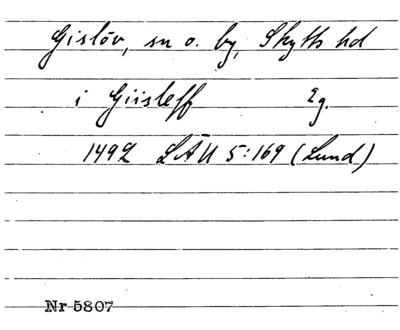 Gislöv, sn o. by, Skytts hd
i Giisleff Eg.
1492 LÄU 5:169 (Lund)
Nr 5807